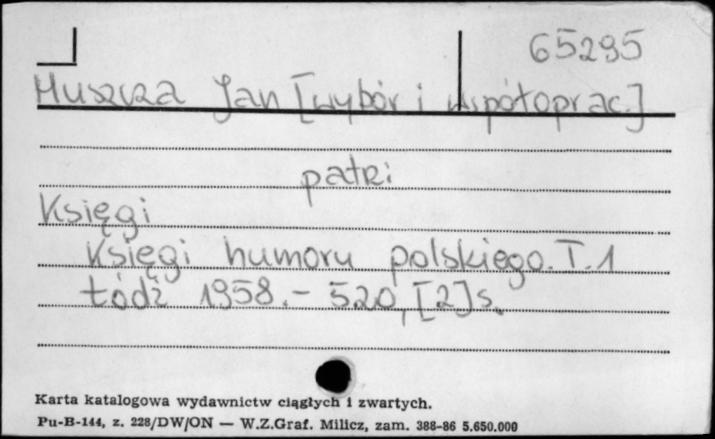 65295
Huszcza Jan [wybór i współoprac.]
patrz
Księgi
Księgi humoru polskiego. T. 1
Łódź 1958. - 520, [2] s.
Karta katalogowa wydawnictw ciągłych i zwartych.
Pu-B-144, z. 228/DW/ON — W.Z.Graf. Milicz, zam. 388-86 5.650.000